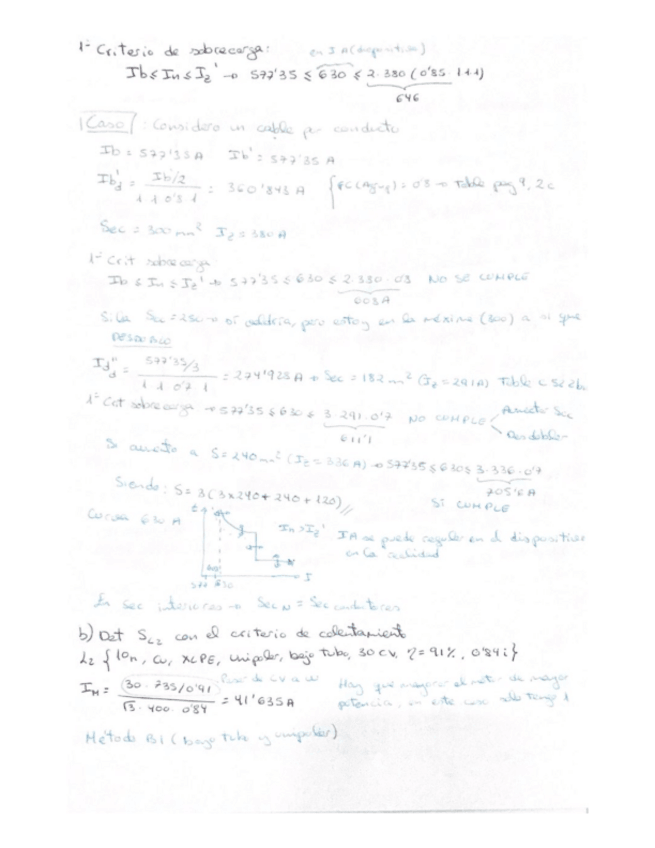 1º Criterio de sobrecarga: en I A (dispositivo)
Ib ≤ In ≤ Iz' → 577'35 ≤ 630 ≤ 2·380 (0'85·1·1·1)
646
1 Caso : Considero un cable por conducto
Ib = 577'35 A Ib' = 577'35 A
Ib'd = Ib/2 / 1·1·0'8·1 = 360'843 A FC(Agrup) = 0'8 → Tabla pag 9, 2c
Sec = 300 mm² Iz = 380 A
1º Crit sobrecarga
Ib ≤ In ≤ Iz' → 577'35 ≤ 630 ≤ 2·380·0'8 NO SE CUMPLE
608A
valdría, pero estoy en la máxima (300) a si que
DESDOBLO
Id'' = 577'35/3 / 1·1·0'7·1 = 274'928 A → Sec = 182 mm² (Iz = 291A) Tabla
1º Crit sobrecarga → 577'35 ≤ 630 ≤ 3·291·0'7 NO CUMPLE Aumentar Sec
611'1 Desdoblar
Si aumento a S = 240 mm² (Iz = 336A) → 577'35 ≤ 630 ≤ 3·336·0'7
705'6 A
Siendo: S = 3(3x240 + 240 + 120) SI CUMPLE
Curva 630 A t In > Iz' IA se puede regular en el dispositivo
en la realidad
577 630 I
En sec interiores → Sec N = Sec conductores
b) Det SL2 con el criterio de calentamiento
L2 {10m, Cu, XLPE, unipolar, bajo tubo, 30 CV, η = 91%, 0'84i}
IM = 30·735/0'91 / √3·400·0'84 = 41'635A Pasar de CV a W Hay que mayorar el motor de mayor
potencia, en este caso solo tengo 1
Método B1 (bajo tubo y unipolar)